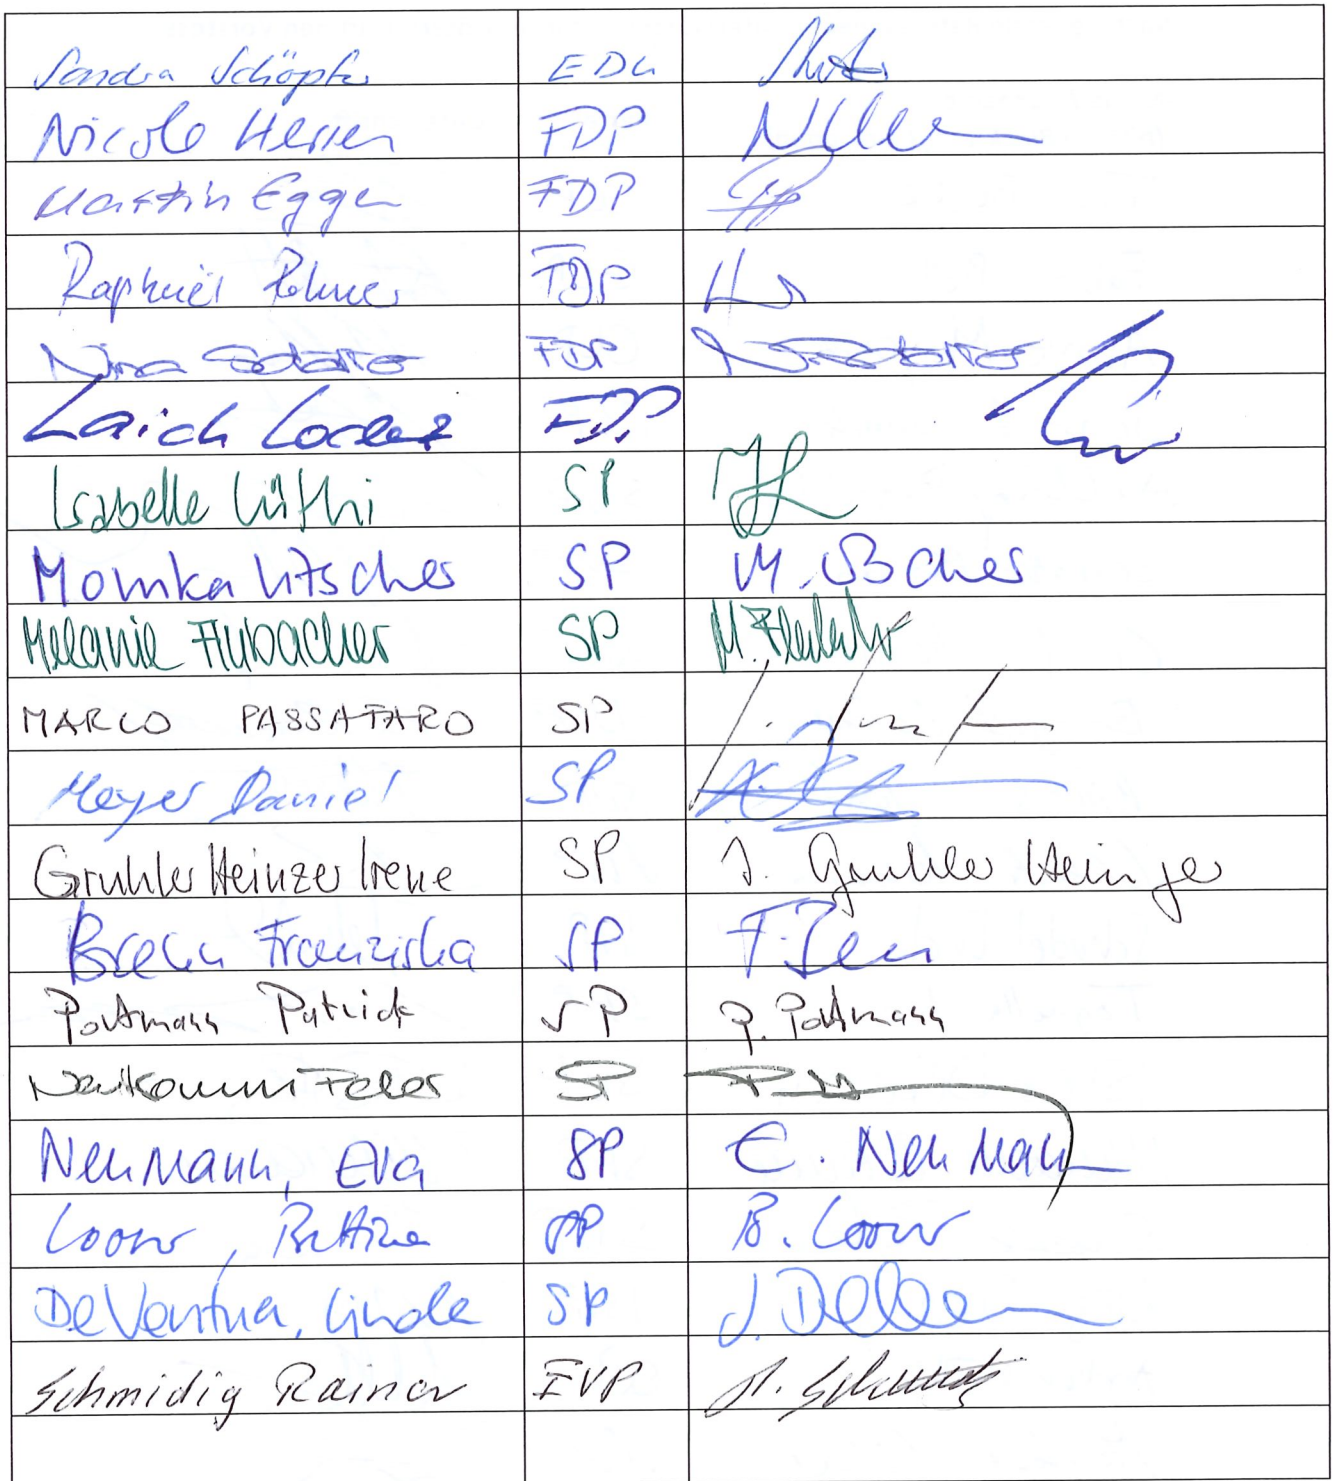 Sandra Schöpfer EDU
Nicole Herren FDP
Martin Egger FDP
Raphaël Rohner FDP
Nina Schärrer FDP
Laich Lorenz FDP
Isabelle Lüthi SP
Monika Litscher SP M. Litscher
Melanie Flubacher SP M. Flubacher
MARCO PASSAFARO SP
Meyer Daniel SP
Gruhler Heinzer Irene SP I. Gruhler Heinzer
Brenn Franziska SP F. Brenn
Portmann Patrick SP P. Portmann
Neukomm Peter SP
Neumann, Eva SP E. Neumann
Looser, Bettina SP B. Looser
De Ventura, Linda SP
Schmidig Rainer EVP R. Schmidig